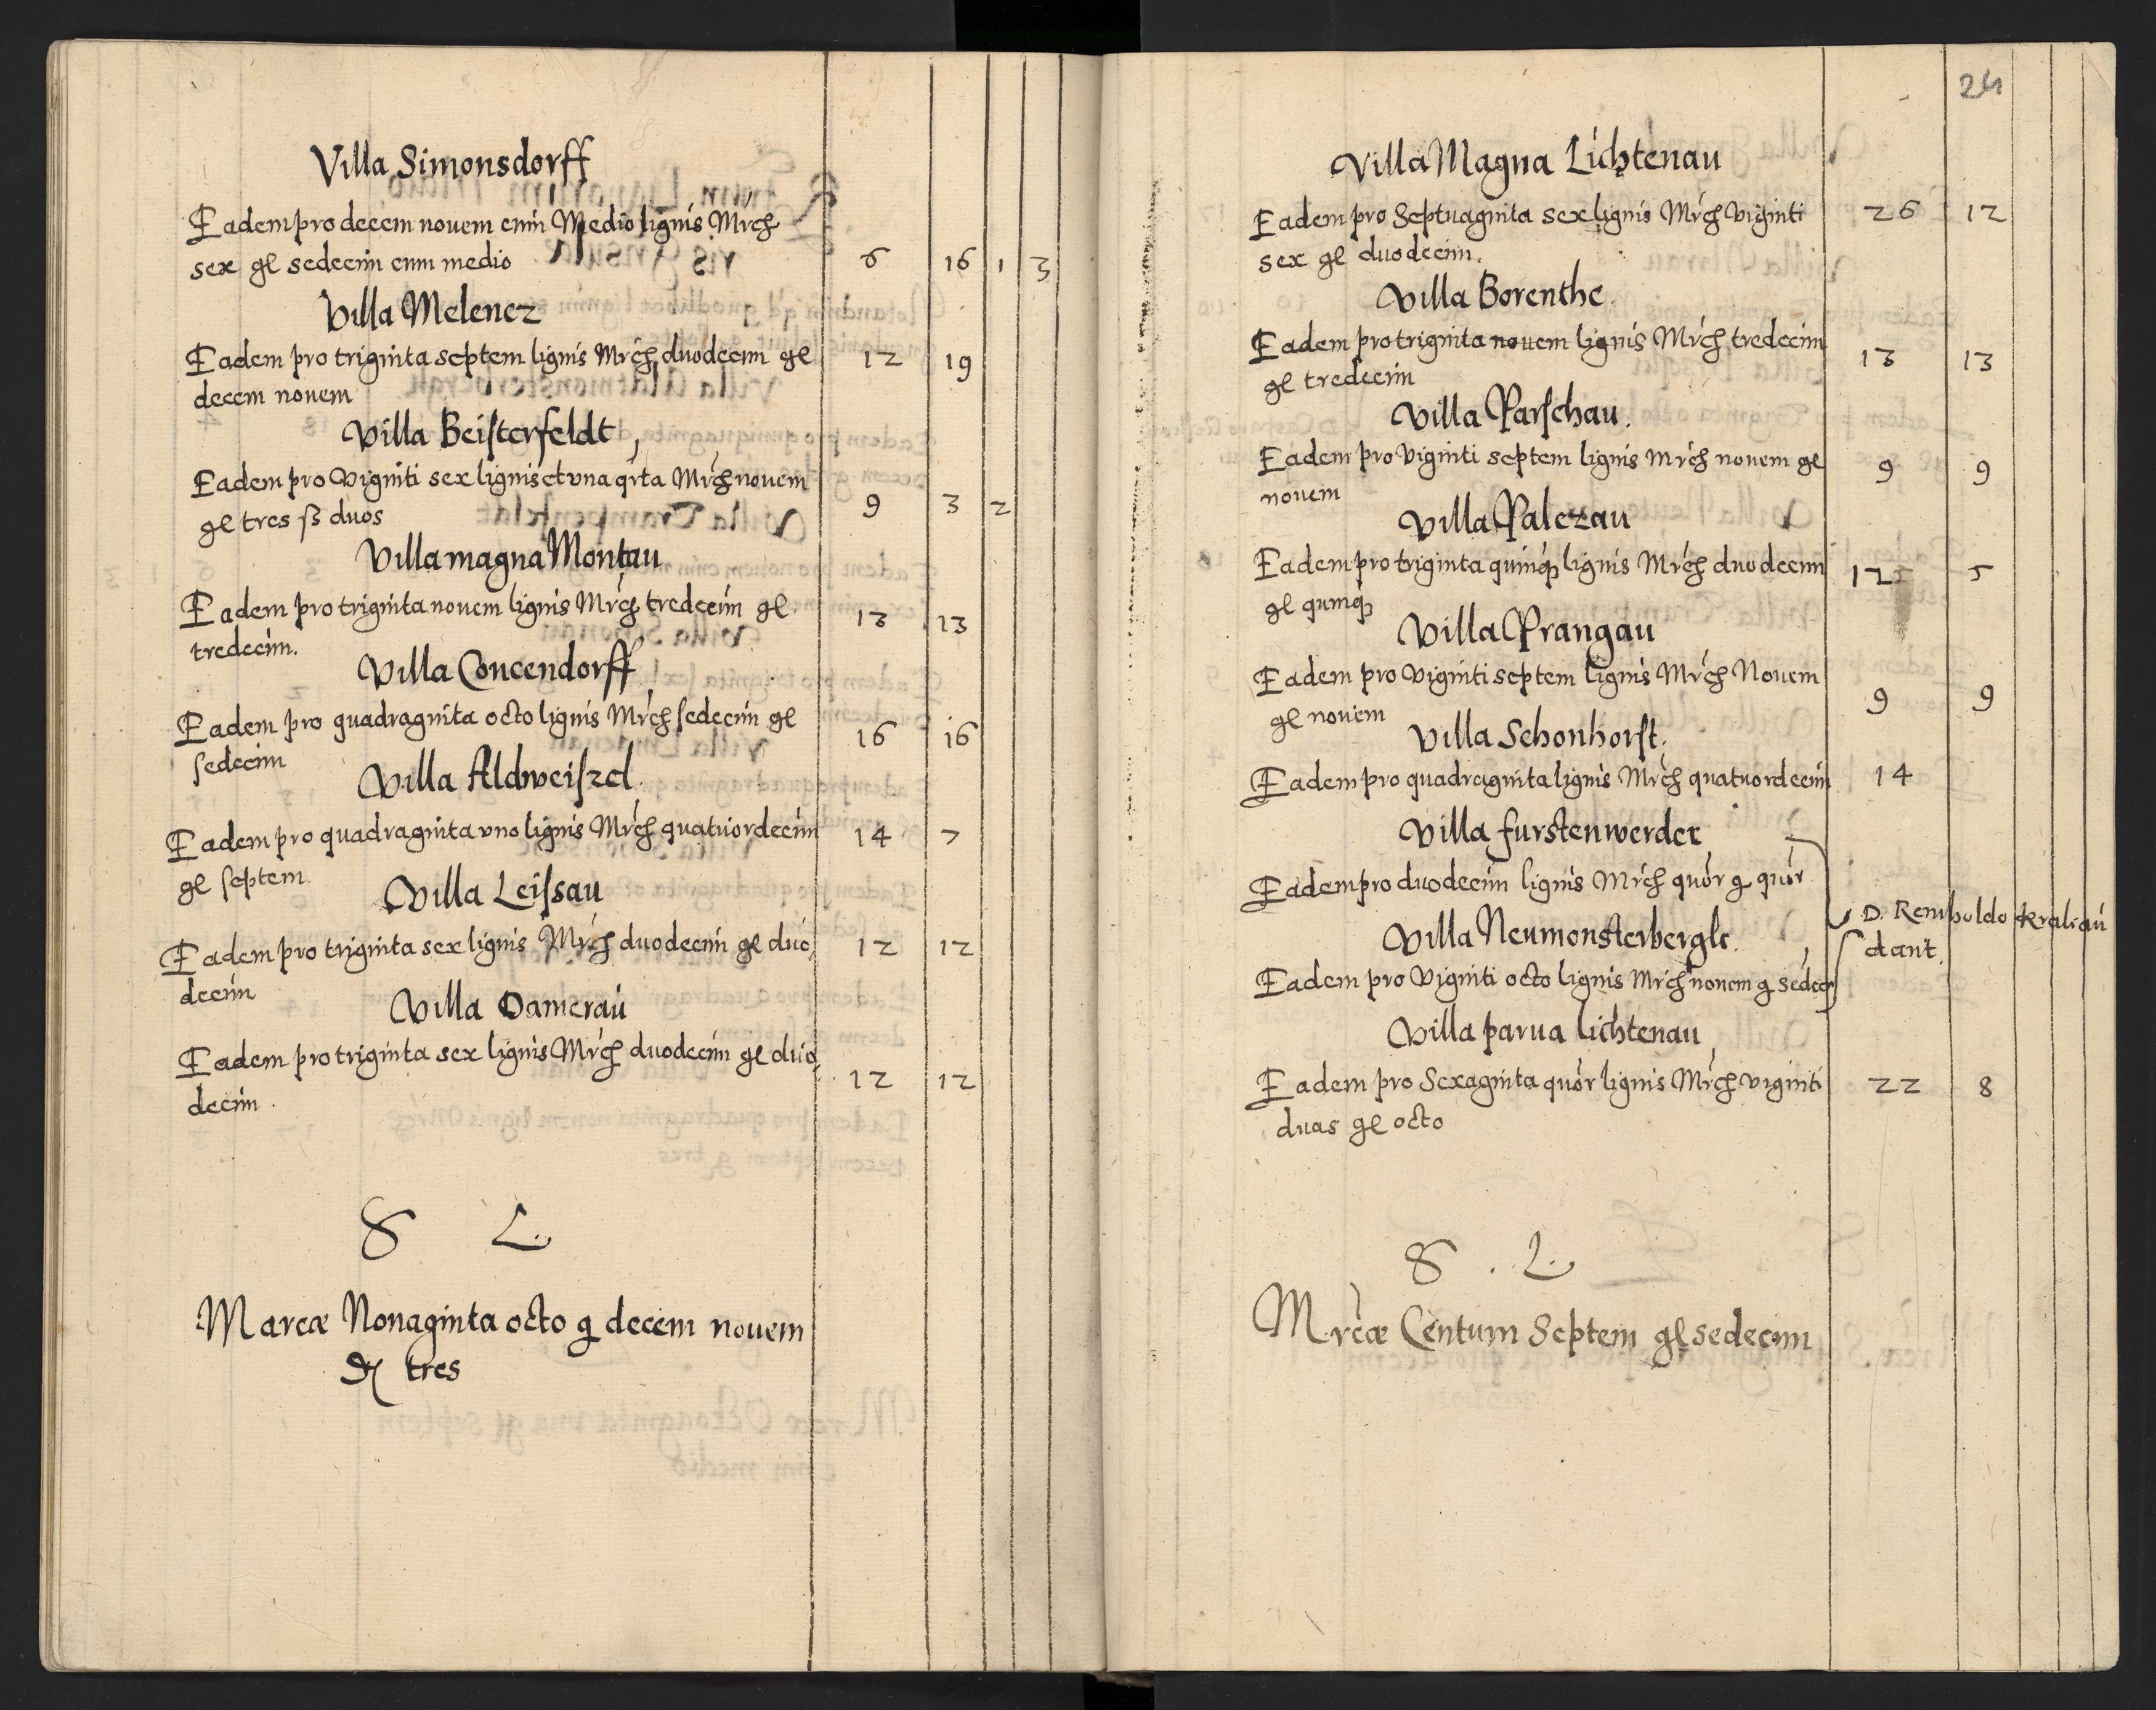 Villa Simonsdorff
Eadem pro decem novem cum Medio lignis Mrch
sex gl sedecim cum medio 6 16 1 3
Villa Melencz
Eadem pro triginta septem lignis Mrch duodecim gl 12 19
decem novem
Villa Beisterfeldt
Eadem pro Viginti sex lignis et vna qrta Mrch novem
gl tres ß duos 9 3 2
Villa magna Montau
Eadem pro triginta novem lignis Mrch tredecim gl 13 13
tredecim.
Villa Concendorff
Eadem pro quadraginta octo lignis Mrch sedecim gl 16 16
sedecim
Villa Aldweiszel.
Eadem pro quadraginta vno lignis Mrch quatuordecim 14 7
gl septem
Villa Leissau
Eadem pro triginta sex lignis Mrch duodecim gl duo 12 12
decim
Villa Damerau
Eadem pro triginta sex lignis Mrch duodecim gl duo 12 12
decim.
S L.
Marcæ Nonaginta octo g decem novem
tres
24
Villa Magna Lichtenau
Eadem pro Septuaginta sex lignis Mrch Viginti 26 12
sex gl duodecim.
Villa Borenthe.
Eadem pro triginta novem lignis Mrch tredecim 13 13
gl tredecim
Villa Parschau.
Eadem pro Viginti septem lignis Mrch novem gl 9 9
novem
Villa Palczau
Eadem pro triginta quinq lignis Mrch duodecim 12 5
gl quinq
Villa Prangau
Eadem pro Viginti septem lignis Mrch Novem 9 9
gl novem
Villa Schonhorst.
Eadem pro quadraginta lignis Mrch quatuordecim 14
Villa furstenwerder
Eadem pro duodecim lignis Mrch quor g quor
D. Remboldo Kraliau
dant.
Villa Neumonsterbergk.
Eadem pro Viginti octo lignis Mrch novem g sedec
Villa parua lichtenau
Eadem pro Sexaginta quor lignis Mrch viginti 22 8
duas gl octo
S. L.
Mrcæ Centum Septem gl sedecim